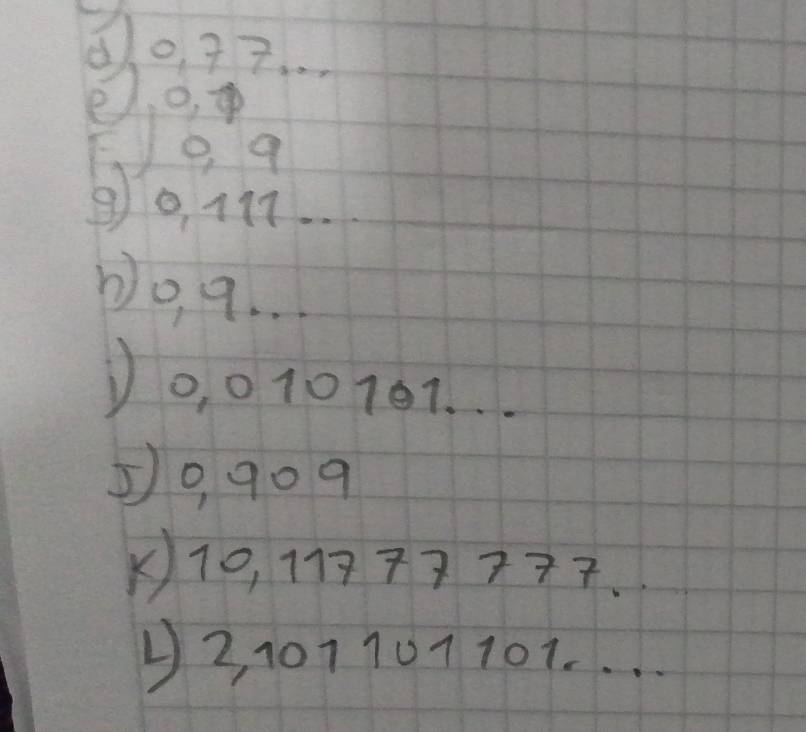 d) 0,77...
e) 0,1
F) 0,9
g) 0,111...
h) 0,9...
i) 0,010101...
J) 0,909
K) 10,1177777777..
L) 2,101101101....